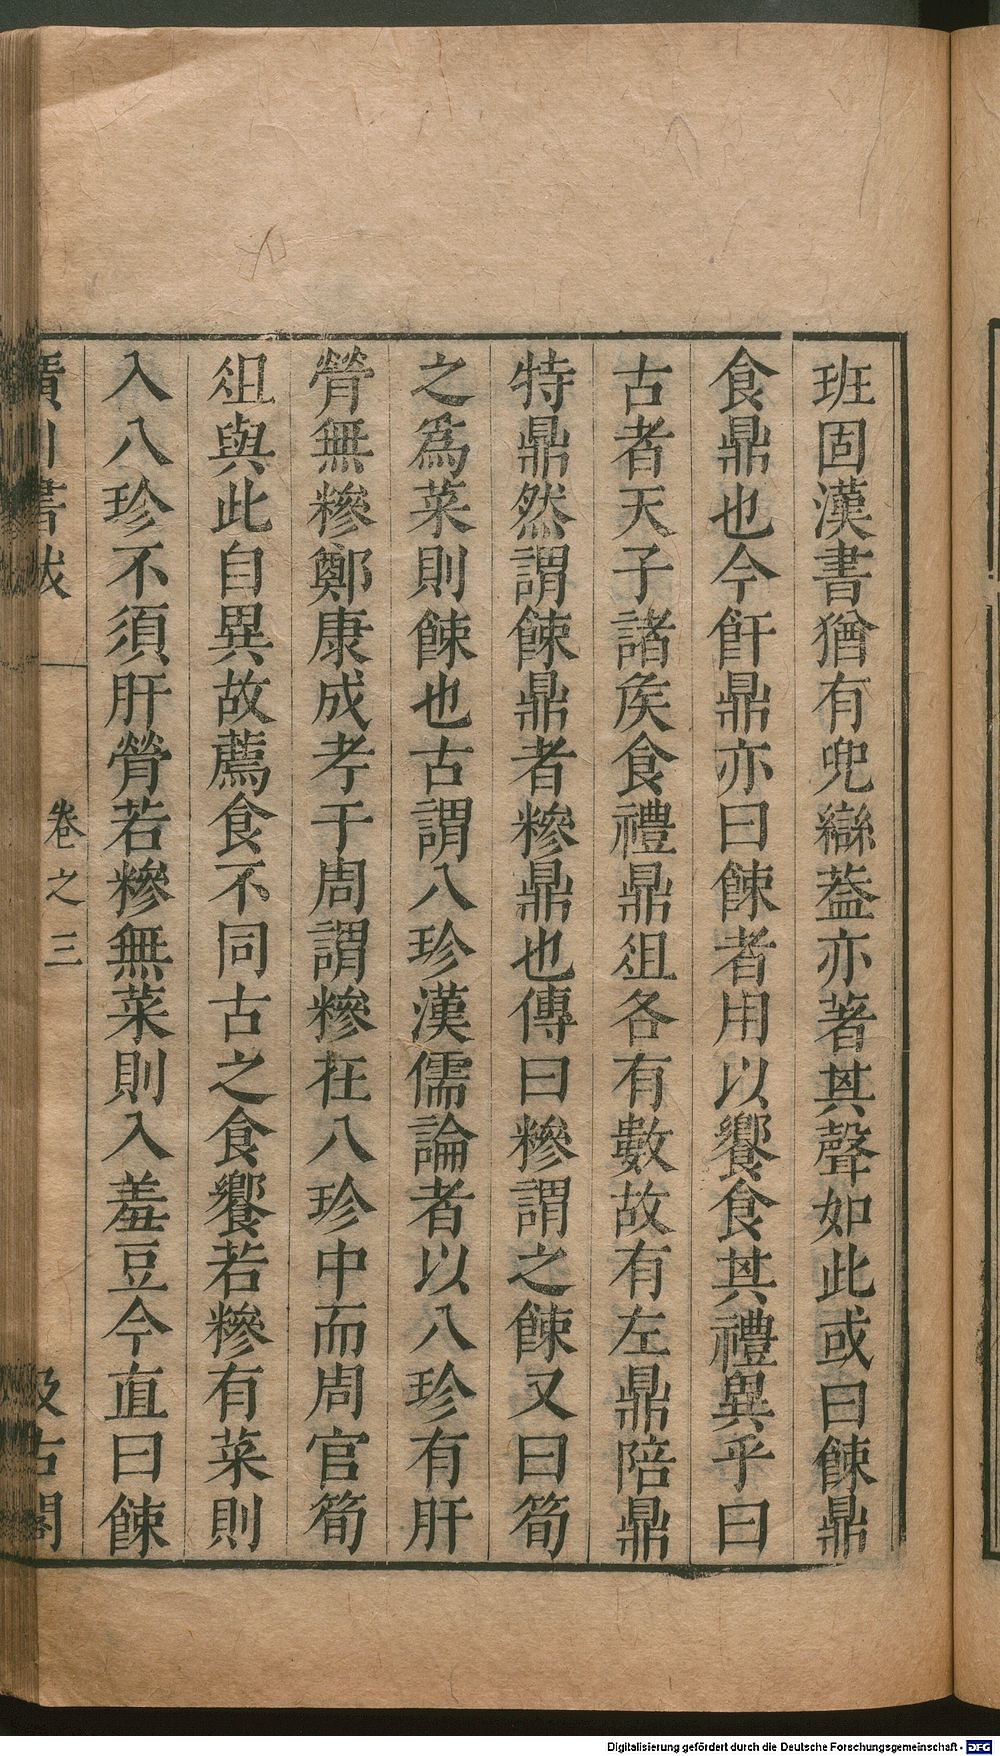 班固漢書猶有兜䜌葢亦著其聲如此或曰餗鼎
食鼎也今飦鼎亦曰餗者用以饗食其禮異乎曰
古者天子諸矦食禮鼎俎各有數故有左鼎陪鼎
特鼎然謂餗鼎者糝鼎也傳曰糝謂之餗又曰筍
之爲菜則餗也古謂八珍漢儒論者以八珍有肝
膋無糝鄭康成考于周謂糝在八珍中而周官筍
俎與此自異故薦食不同古之食饗若糝有菜則
入八珍不須肝膋若糝無菜則入羞豆今直曰餗
廣川書跋
卷之三
汲古閣
Digitalisierung gefördert durch die Deutsche Forschungsgemeinschaft - DFG